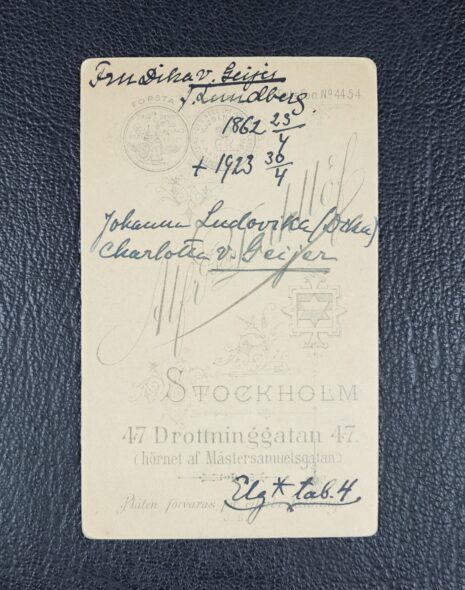 Fru Dika v. Geijer
f. Lundberg.
Telefon No 4454.
FÖRSTA
1862 23/4
+ 1923 30/4
Johanna Ludovika (Dika)
Charlotta v. Geijer
STOCKHOLM
47 Drottninggatan 47.
(hörnet af Mästersamuelsgatan)
Elg* tab. 4
Plåten förvaras för